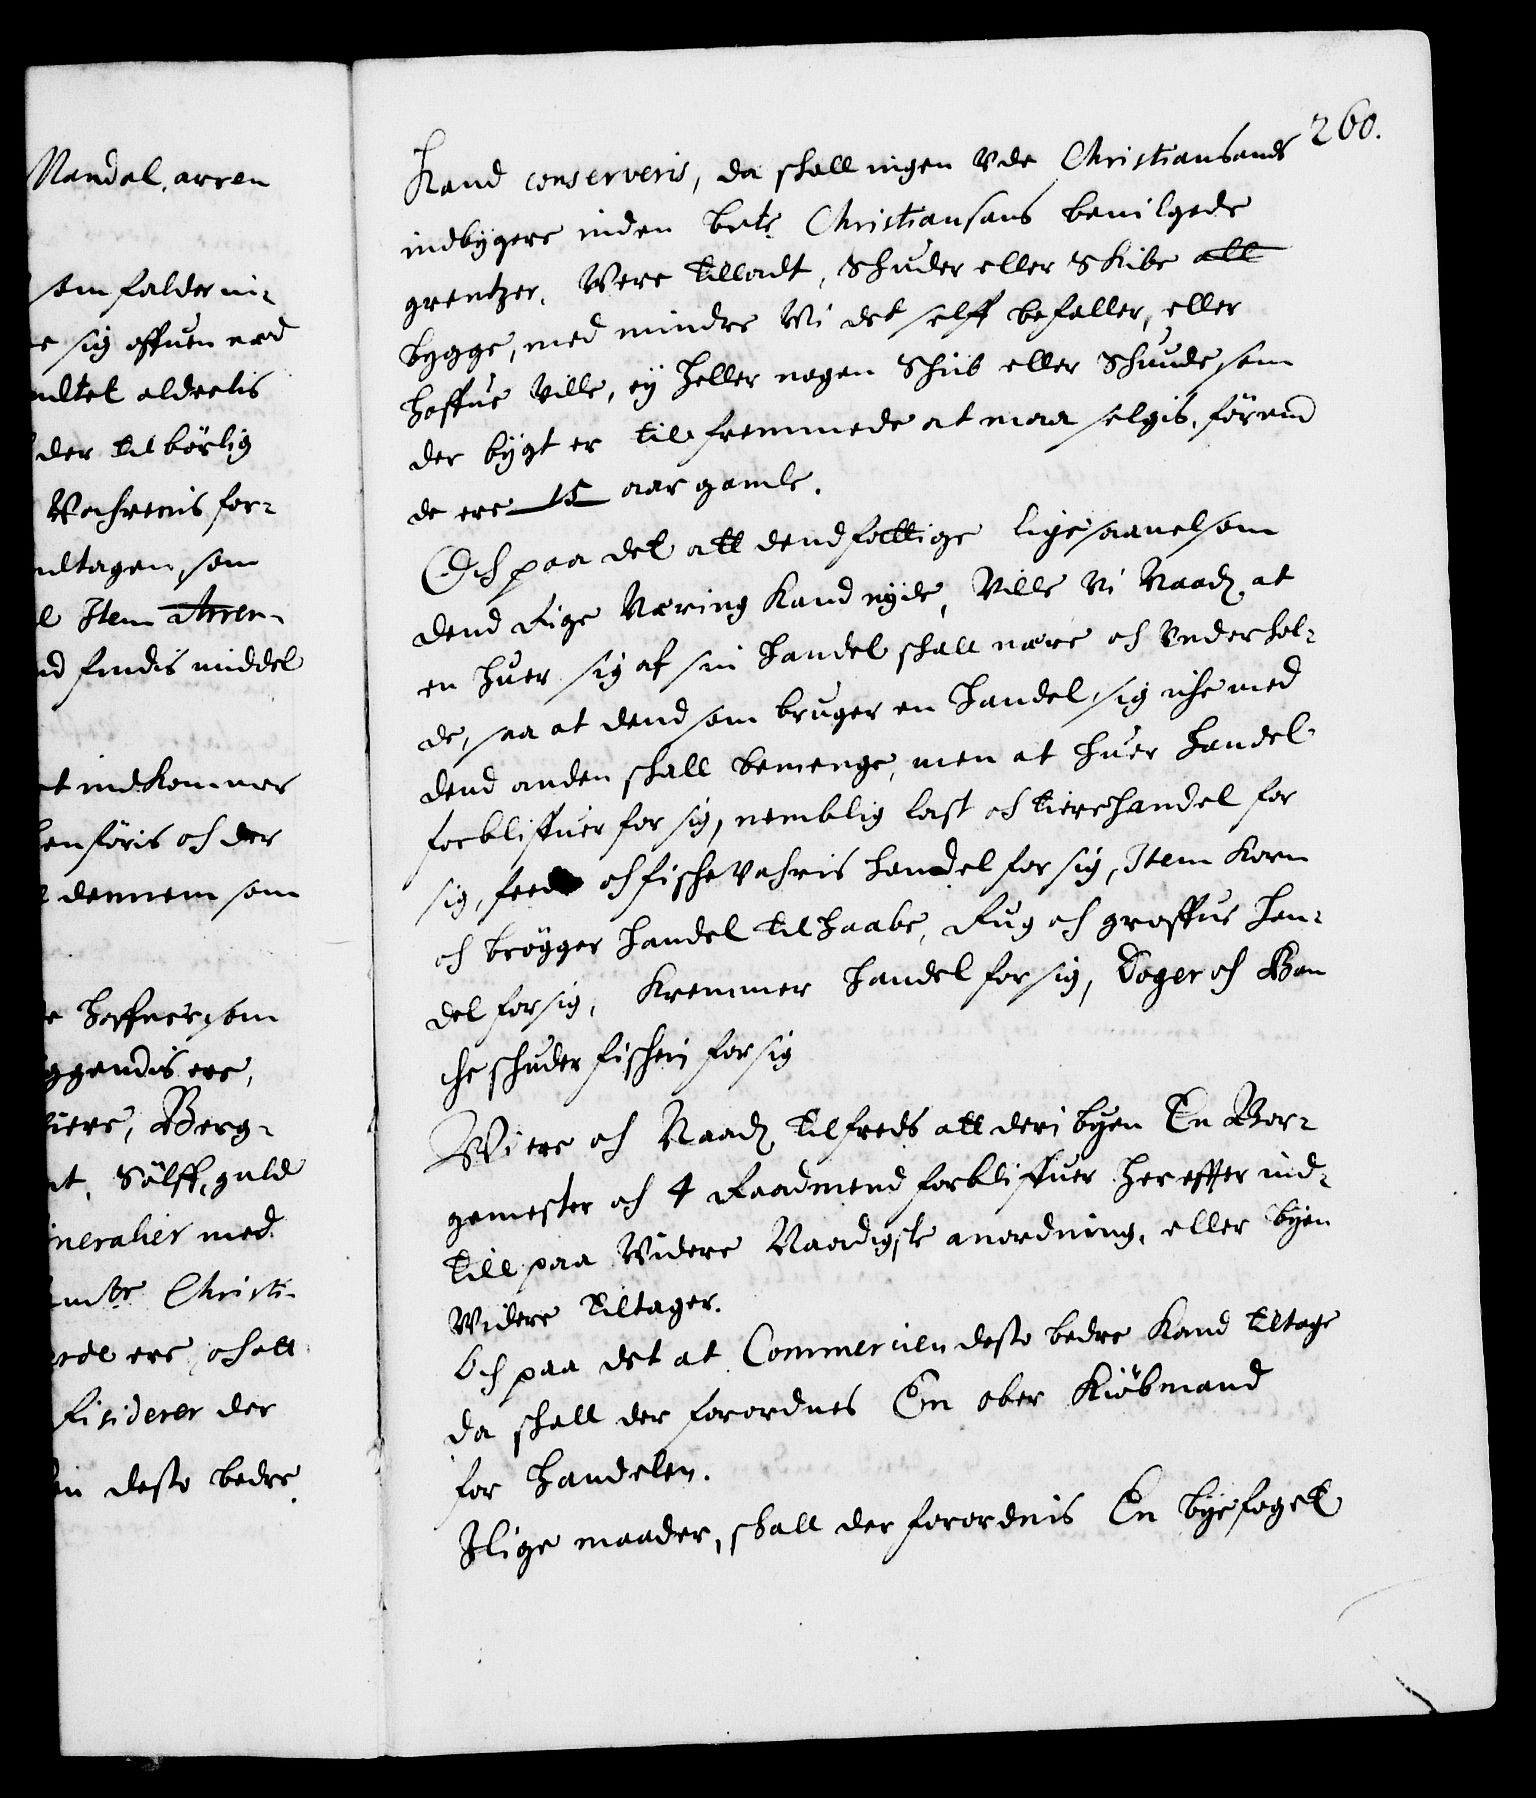 Mandal, arren
som falder in-
e sig offuen ned
ndtet aldeelis
der tilbörlig
Wahrenis for-
ndtagen, som
l Item Arren-
nd findis middel
t indkommer
henföris och der
dennem som
e Haffner, som
ggendis ere,
tiere, Berg-
nt, Sölff, guld
ineralier med
mbte Christi-
rdt ere, och att
fisiderer der
in desto bedre
260.
Kand conserveris, da shall ingen Vden Christiansands
indbygere inden bete Christiansans bevilgede
grentzer, Were tilladt, Skuder eller Skibe att
bygge, med mindre Wi det selff befaller, eller
haffue Ville, ey heller nogen Skib eller Skuude, som
der bygt er til fremmede at maa selgis, förend
de ere 15 aar gamle.
Och paa det att dend fattige lige saauelsom
dend Rige Næring Kand nyde, Ville Vi Naadt at
en huer sig af sin Handel shall nære och Vnderhol-
de, saa at dend som bruger en Handel, sig iche med
dend anden shall bemenge, men at huer Handel
forbliffuer for sig, nemblig last och tierehandel for
sig, feed och fishe Vahris Handel for sig, Item Korn
och brögger Handel tilhaabe, Rug och groffue Han-
del for sig, Kremmer Handel for sig, Doger och Ban
che shuder fisheri for sig
Wi ere och Naadt tilfreds att der i byen En Bor-
gemester och 4 Raadmend forbliffuer her effter ind-
till paa Widere Naadigste anordning, eller byen
Widere tiltager.
Och paa det at Commercien desto bedre Kand tiltage
da shall der forordnes En ober Kiöbmand
for Handelen.
I lige maader, shall der forordnis En byefoget